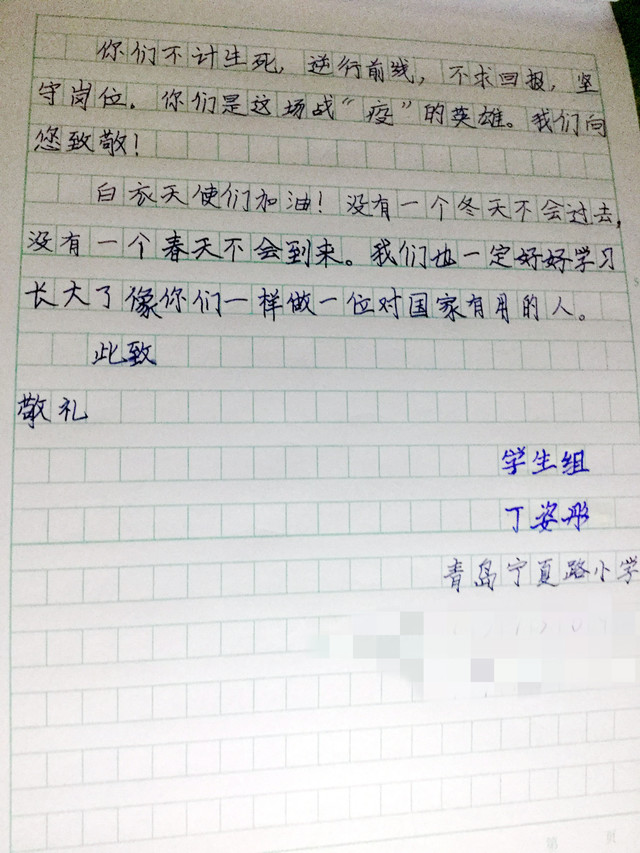 你们不计生死，逆行前线，不求回报，坚
守岗位。你们是这场战“疫”的英雄。我们向
您致敬！
白衣天使们加油！没有一个冬天不会过去，
没有一个春天不会到来。我们也一定好好学习
长大了像你们一样做一位对国家有用的人。
此致
敬礼
学生组
丁姿彤
青岛宁夏路小学
第 页